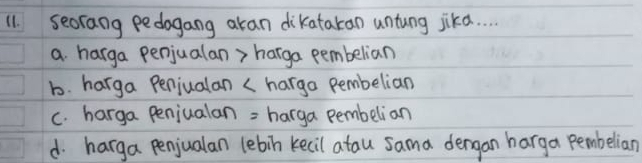 11. seorang pedagang akan dikatakan untung jika....
a. harga penjualan > harga pembelian
b. harga penjualan < harga pembelian
c. harga penjualan = harga pembelian
d. harga penjualan lebih kecil atau sama dengan harga pembelian